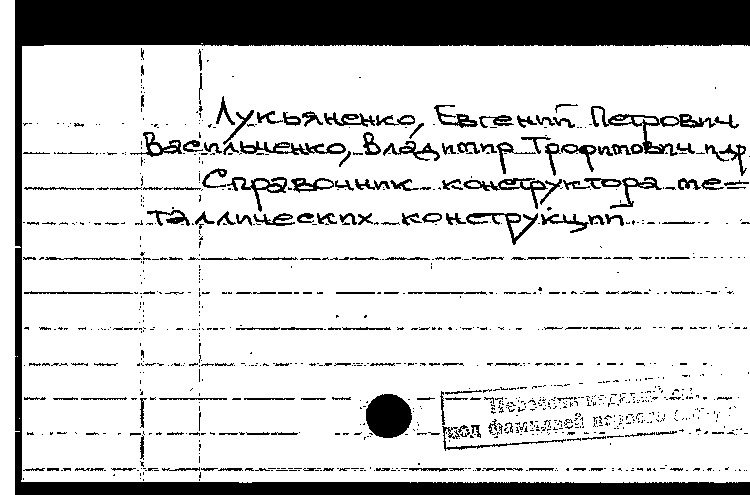 Лукьяненко, Евгений Петрович
Васильченко, Владимир Трофимович и др
Справочник конструктора ме=
таллических конструкций.
Перечень изданий см.
под фамилией первого